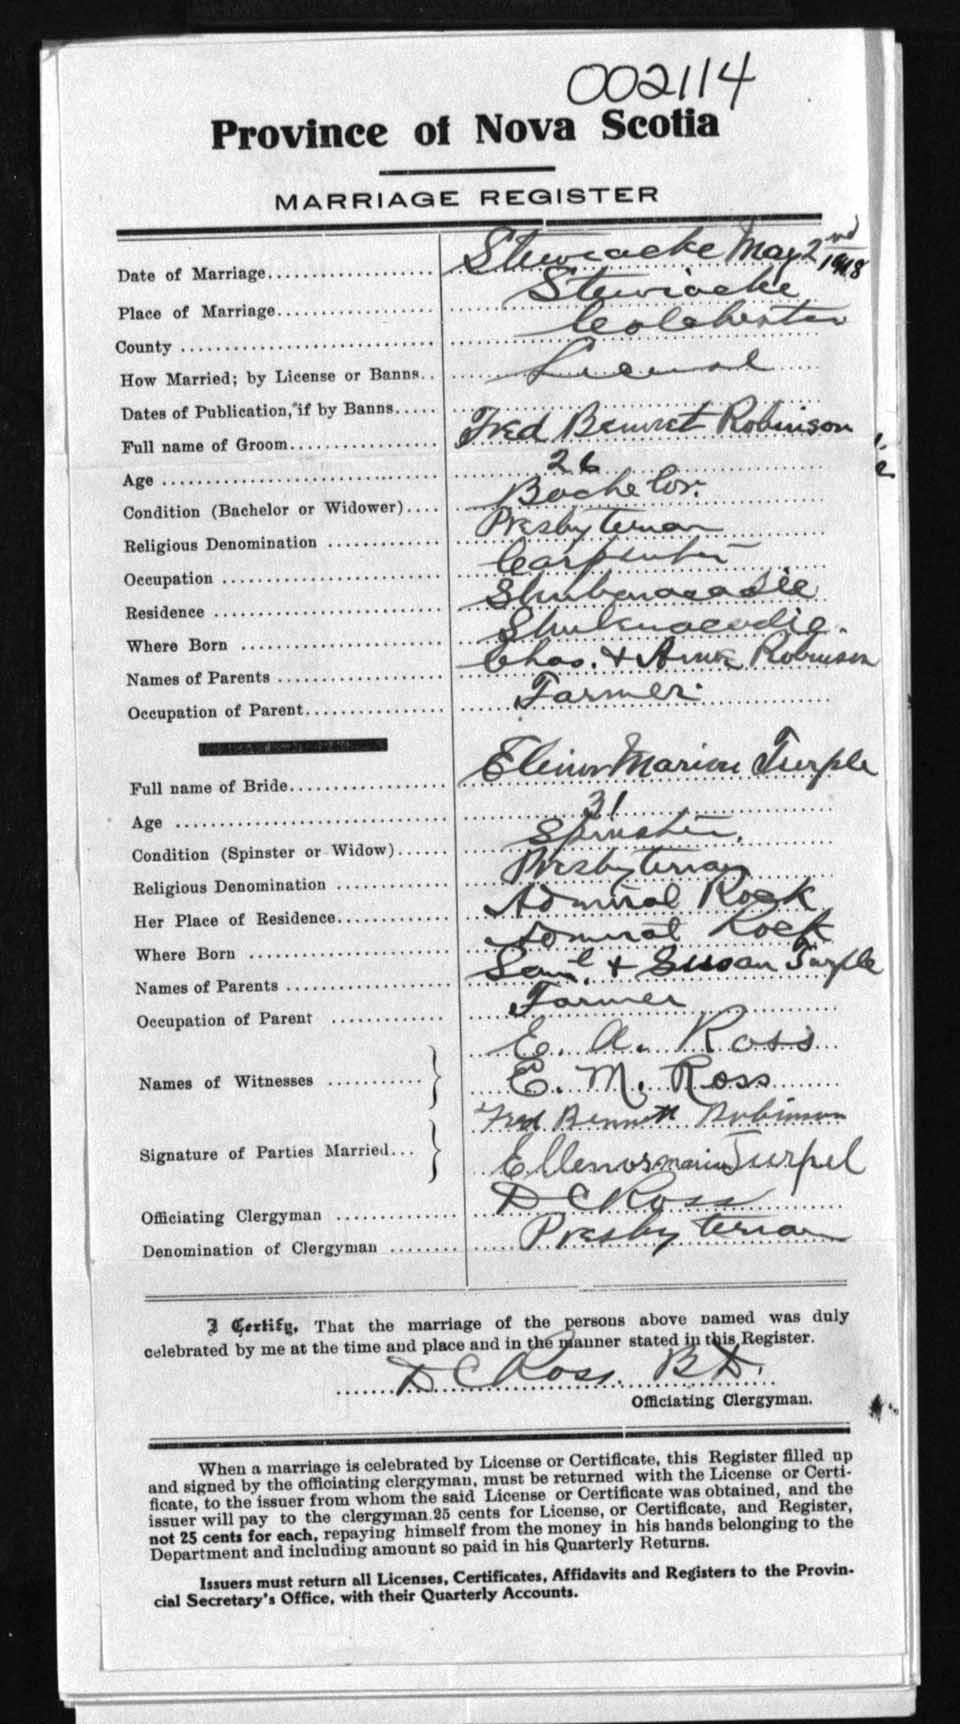 002114
Province of Nova Scotia
MARRIAGE REGISTER
Date of Marriage Stewiacke May 2nd 1918
Place of Marriage Stewiacke
County Colchester
How Married; by License or Banns License
Dates of Publication, if by Banns
Full name of Groom Fred Bennet Robinson
Age 26
Condition (Bachelor or Widower) Bachelor.
Religious Denomination Presbyterian
Occupation Carpenter
Residence Shubenacadie
Where Born Shubenacadie.
Names of Parents Chas. + Robinson
Occupation of Parent Farmer.
Full name of Bride Elinor Marion Turple
Age 31
Condition (Spinster or Widow) Spinster.
Religious Denomination Presbyterian
Her Place of Residence Admiral Rock
Where Born Admiral Rock
Names of Parents Saml. + Susan Turple
Occupation of Parent Farmer
Names of Witnesses E. A. Ross
E. M. Ross
Signature of Parties Married Fred Bennett Robinson
Ellenor Marion Turpel
Officiating Clergyman D C Ross
Denomination of Clergyman Presbyterian
I Certify, That the marriage of the persons above named was duly
celebrated by me at the time and place and in the manner stated in this Register.
D C Ross. B.D.
Officiating Clergyman.
When a marriage is celebrated by License or Certificate, this Register filled up
and signed by the officiating clergyman, must be returned with the License or Certi-
ficate, to the issuer from whom the said License or Certificate was obtained, and the
issuer will pay to the clergyman 25 cents for License, or Certificate, and Register,
not 25 cents for each, repaying himself from the money in his hands belonging to the
Department and including amount so paid in his Quarterly Returns.
Issuers must return all Licenses, Certificates, Affidavits and Registers to the Provin-
cial Secretary's Office, with their Quarterly Accounts.